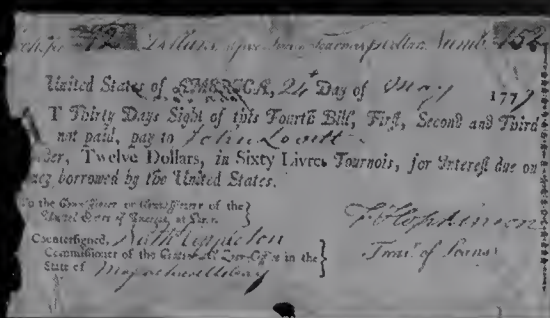 12 Dollars, Numb. 152
United States of AMERICA, 24 Day of May 1779
T Thirty Days Sight of this Fourth Bill, First, Second and Third
not paid, pay to John Lovett
der, Twelve Dollars, in Sixty Livres Tournois, for Interest due on
ney borrowed by the United States.
To the Commissioner or Commissioners of the }
United States of America, at Paris.
F Hopkinson
Countersigned, Nath Appleton
Commissioner of the Continental Loan-Office in the }
Treas.r of Loans
State of Massachusetts bay